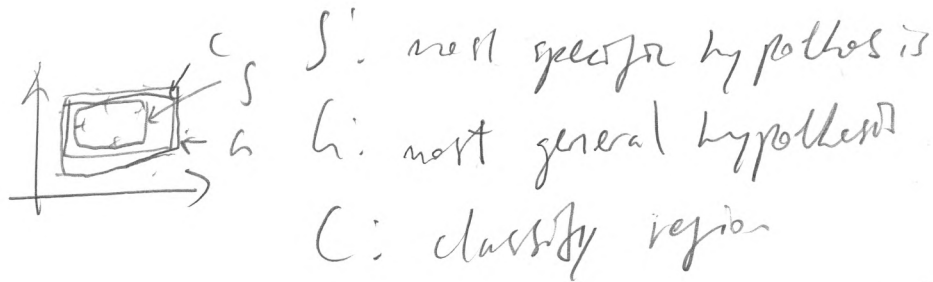 C
S
G
S: most specific hypothesis
G: most general hypothesis
C: classify region